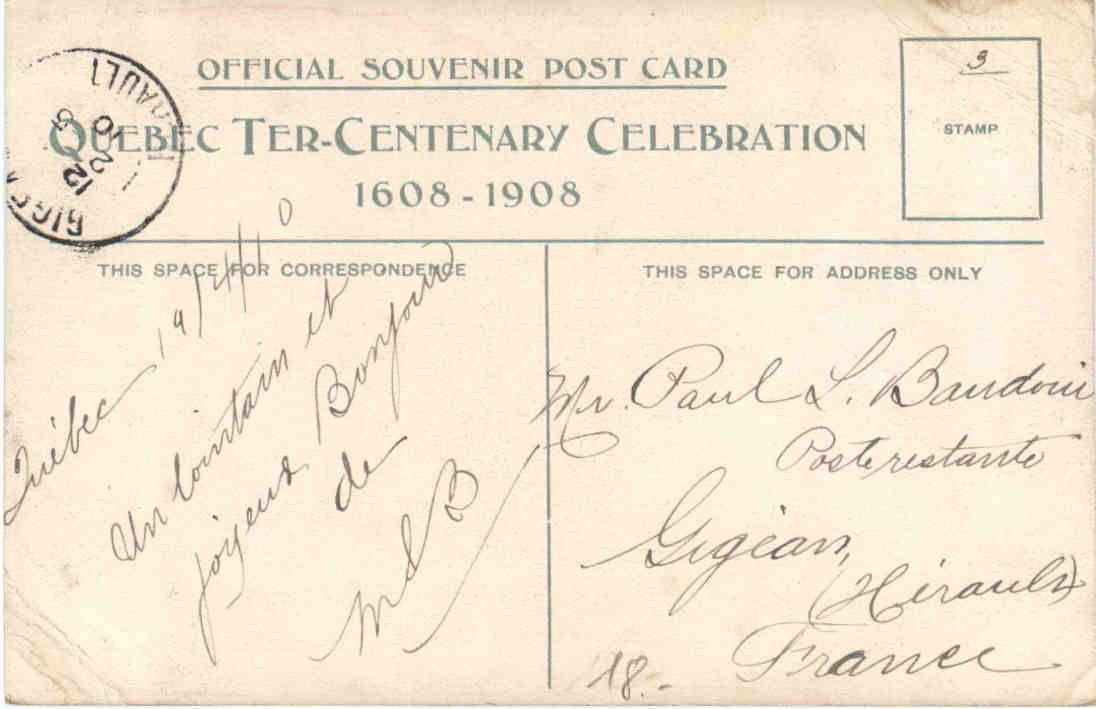 OFFICIAL SOUVENIR POST CARD
QUEBEC TER-CENTENARY CELEBRATION
1608-1908
3
STAMP
HÉRAULT
12
10
THIS SPACE FOR CORRESPONDENCE
Québec 19/4/10
Un lointain et
joyeux Bonjour
de
M S B
THIS SPACE FOR ADDRESS ONLY
Mr. Paul L. Baudouin
Poste restante
Gigean,
(Hérault)
France
18.-